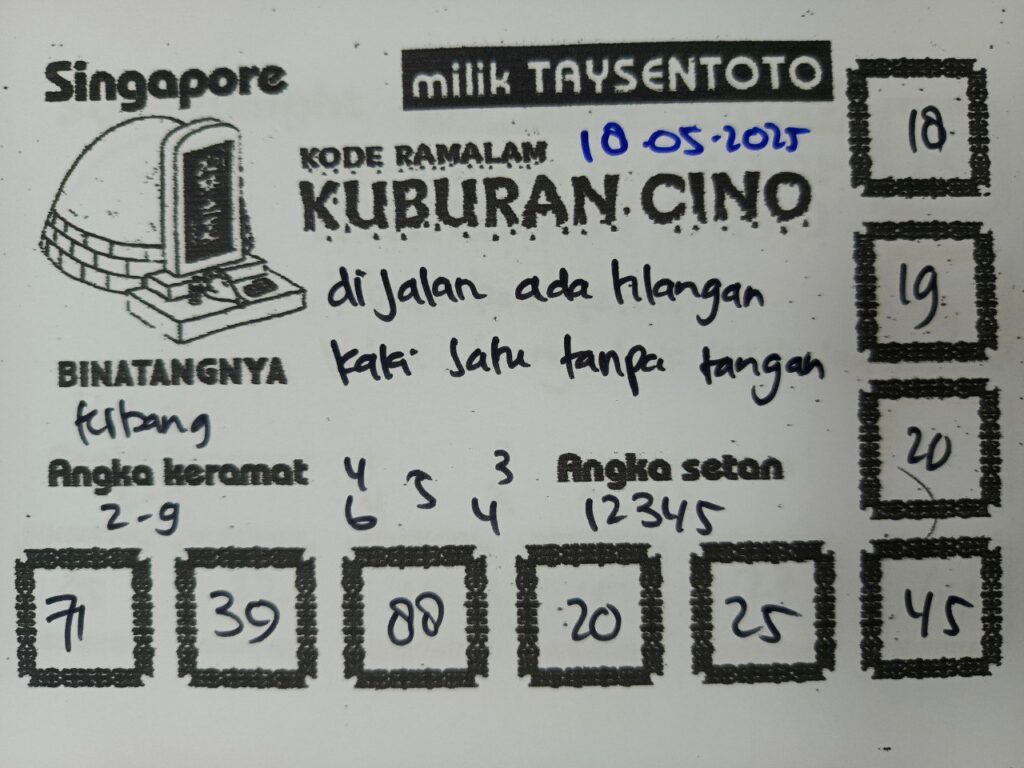 Singapore
milik TAYSENTOTO
KODE RAMALAM
18-05-2025
KUBURAN CINO
di jalan ada hilangan
kaki satu tanpa tangan
BINATANGNYA
terbang
Angka keramat
2-9
4 5 3
6 4
Angka setan
12345
18
19
20
71 39 88 20 25 45